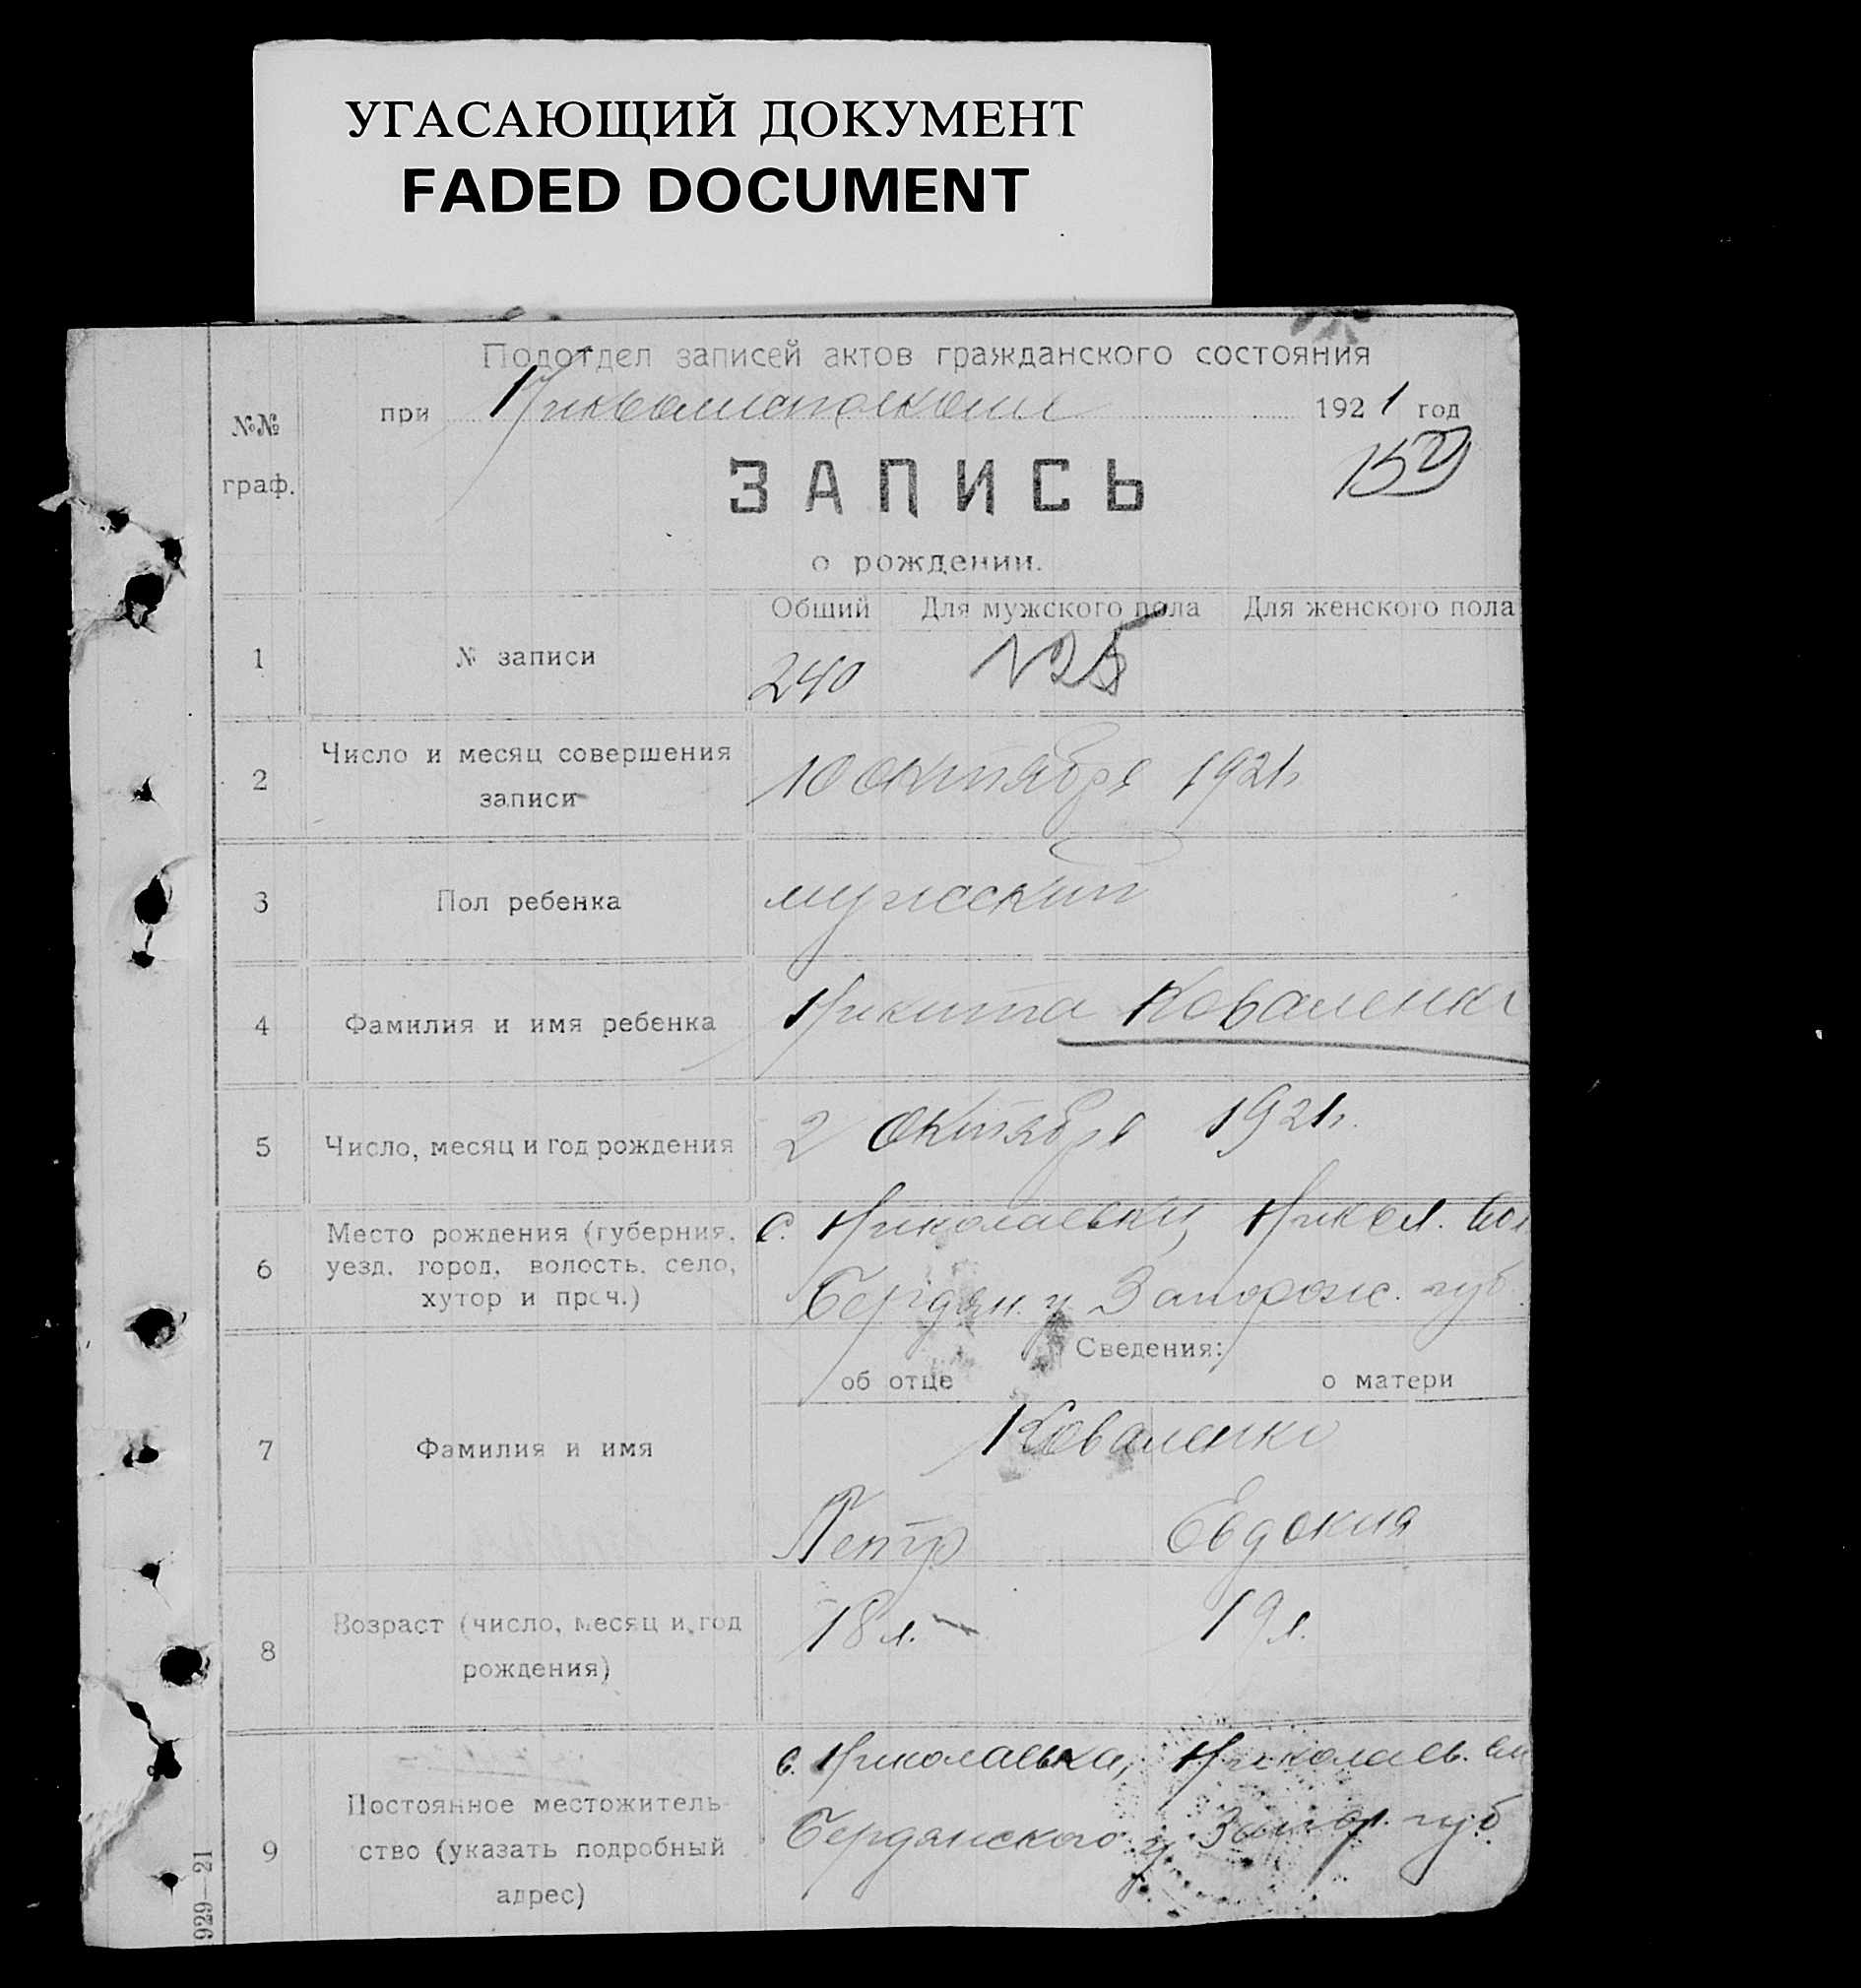 УГАСАЮЩИЙ ДОКУМЕНТ
FADED DOCUMENT
Подотдел записей актов гражданского состояния
при 1921 год
№№
граф.
159
ЗАПИСЬ
о рождении.
Общий Для мужского пола Для женского пола
1 № записи 240 125
2 Число и месяц совершения
записи 10 Октября 1921 г
3 Пол ребенка мужской
4 Фамилия и имя ребенка Никита Коваленко
5 Число, месяц и год рождения 2 Октября 1921 г.
6 Место рождения (губерния, с. Николаевки, Никол. вол
уезд, город, волость, село, Бердян. у Запорож. губ.
хутор и проч.)
Сведения:
об отце о матери
Коваленко
7 Фамилия и имя
Петр Евдокия
8 Возраст (число, месяц и год 18 л. 19 л.
рождения)
с. Николаевка, Николаев. вол
9 Постоянное местожитель-
ство (указать подробный Бердянского у Запор. губ.
адрес)
929—21